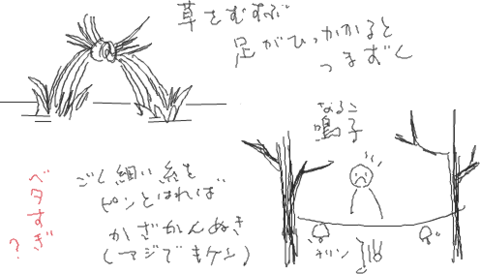 草をむすぶ
足がひっかかると
つまずく
なるこ
鳴子
ごく細い糸を
ピンとはれば
かざかんぬき
(マジでキケン)
ベタすぎ
?
チリン